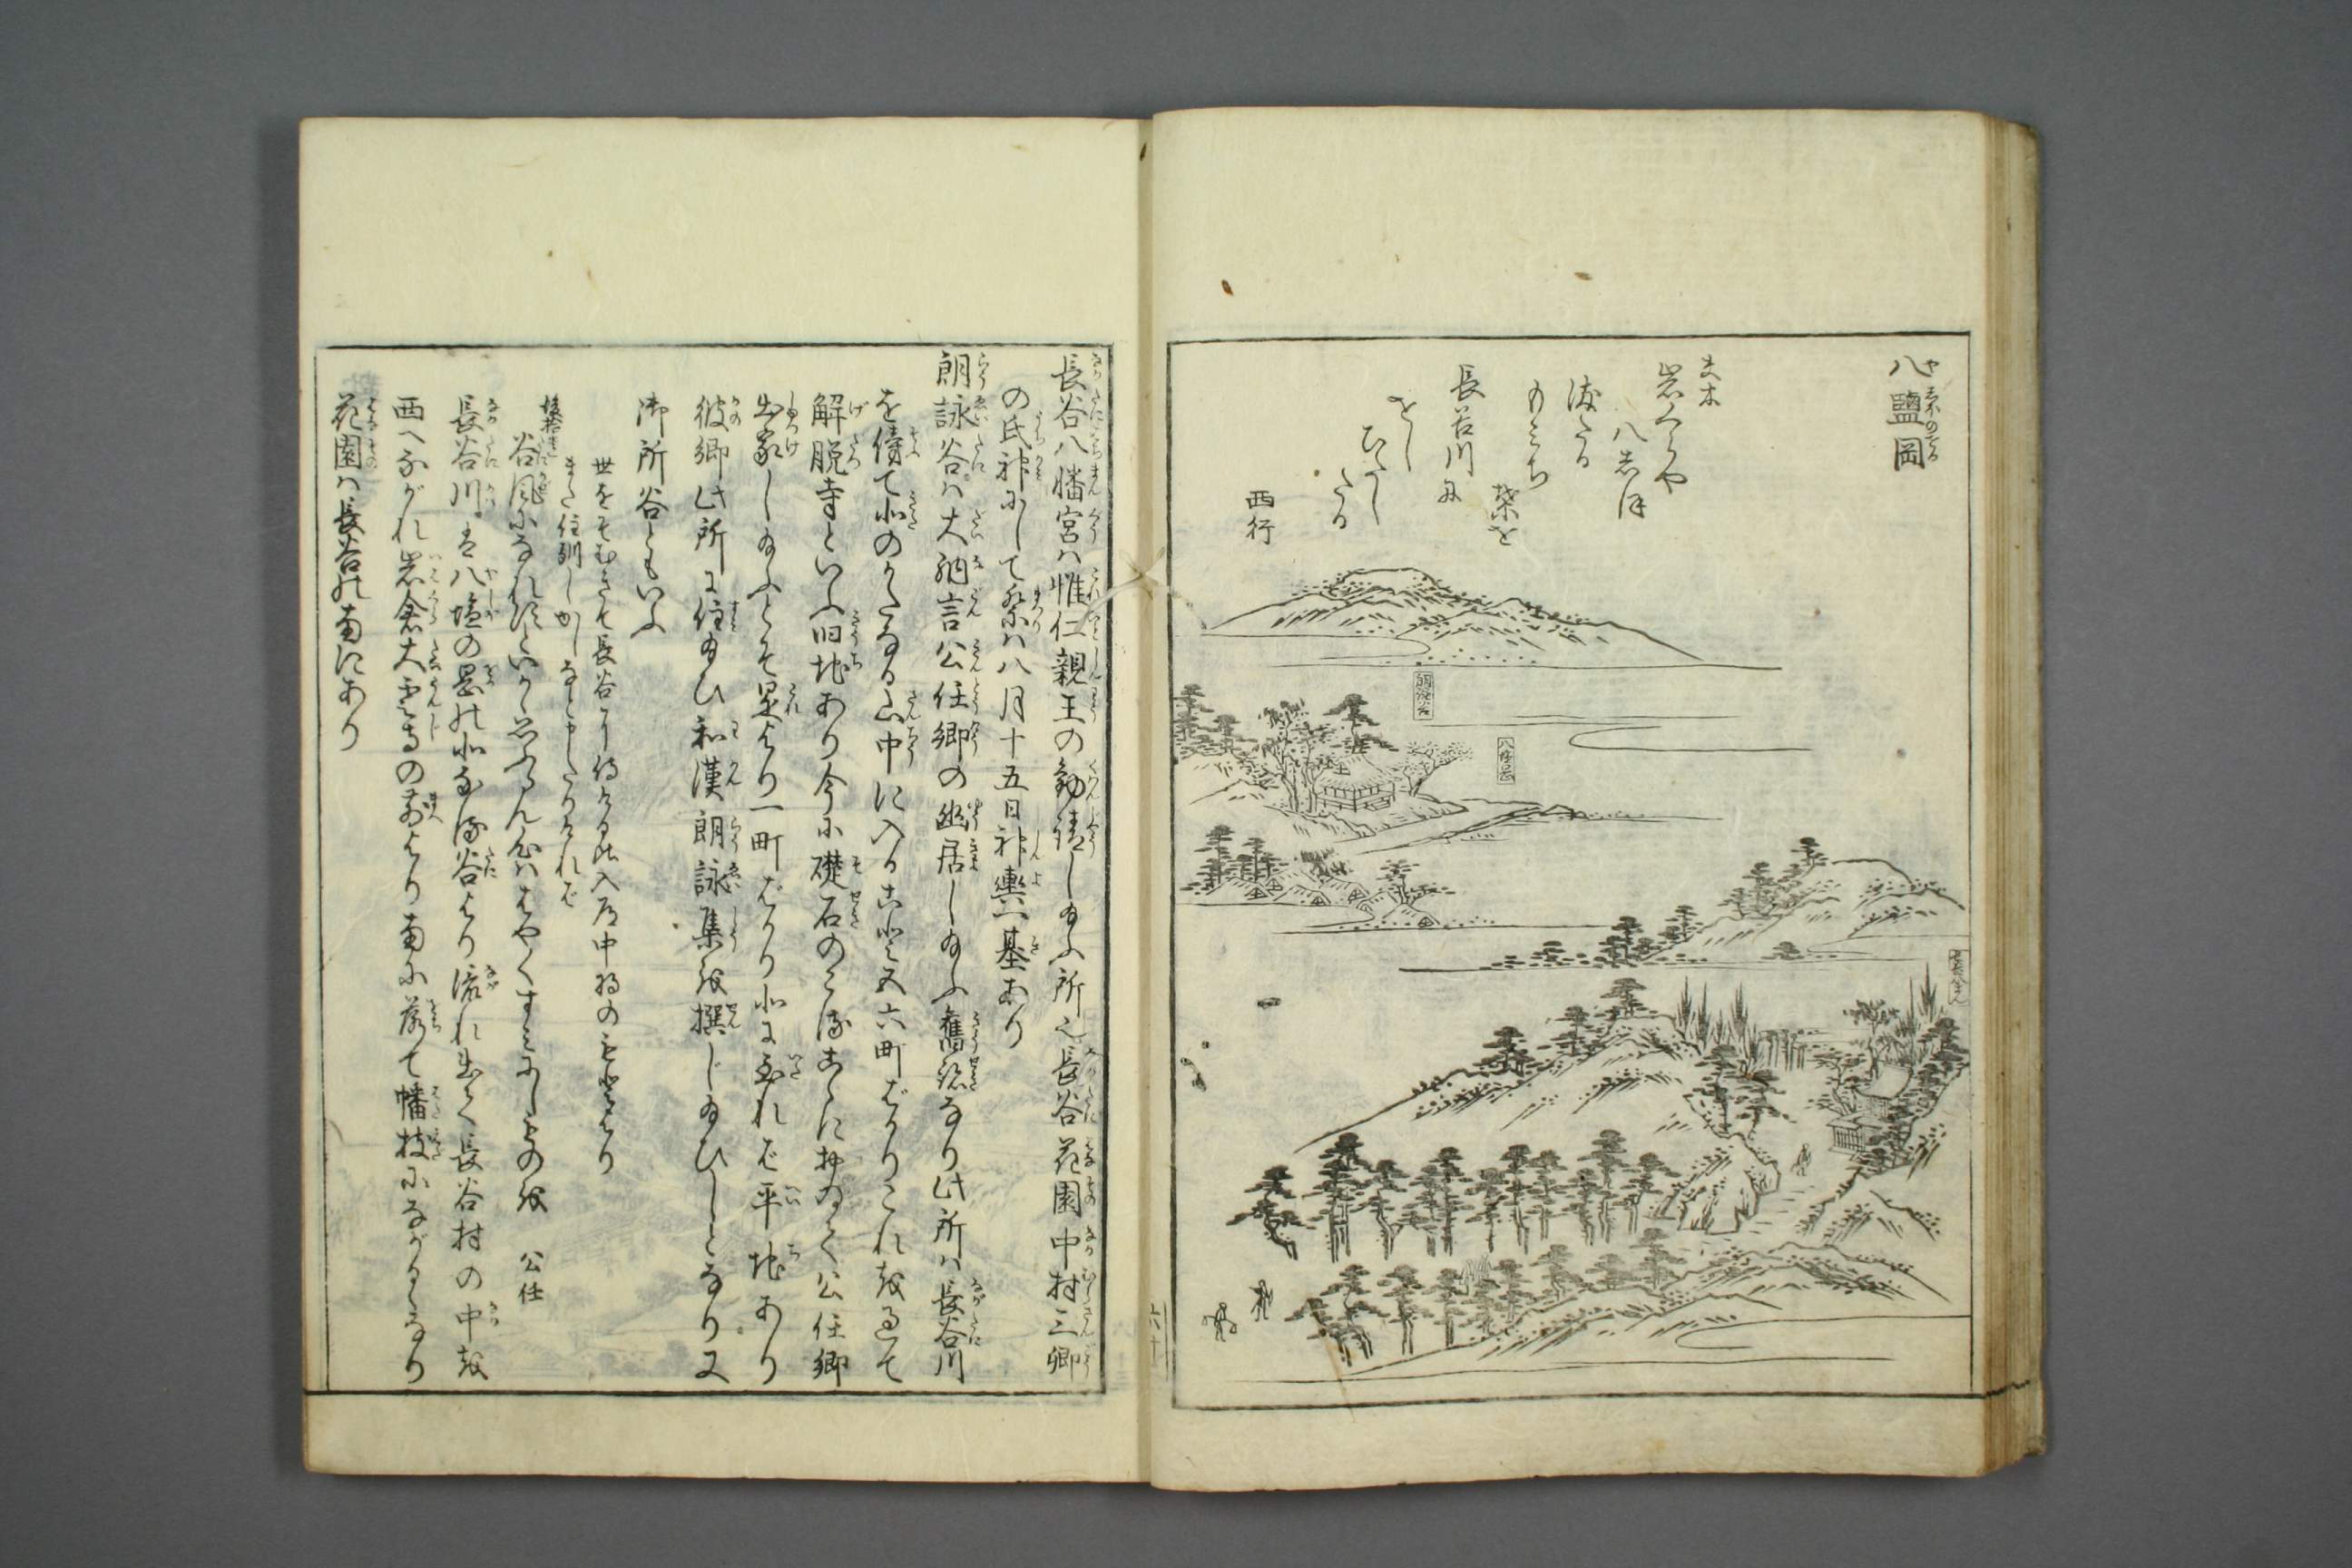 八鹽岡
夫木
岩くらや
八志ほ
染たる
もみち
葉を
長谷川に
をし
ひたし
たる
西行
朗詠谷
長谷八幡宮ハ惟仁親王の勧請し給ふ所也長谷花園中村三郷
の氏神にして祭ハ八月十五日神輿一基あり
朗詠谷ハ大納言公任卿の幽居し給ふ舊跡なり此所ハ長谷川
を傍て北のかたなる山中に入る事五六町ばかりこれを過て
解脱寺といふ旧地あり今に礎石のこる
公任卿
出家し給ふとぞ是より一町ばかり北に至れば平地あり
彼卿此所に住給ひ和漢朗詠集を撰じ給ひしとなり又
御所谷ともいふ
世をそむきて長谷に侍ける比入道中将のもとより
また住馴しかしなと申たりけれバ
谷風になれずといかゞ思ふらん心ハはやくすみにしものを 公任
長谷川は八塩の岡の北
谷より流れ出て長谷村の中を
西へながれ岩倉大雲寺の前より南に落て幡枝にながるゝなり
花園ハ長谷の南にあり
六十